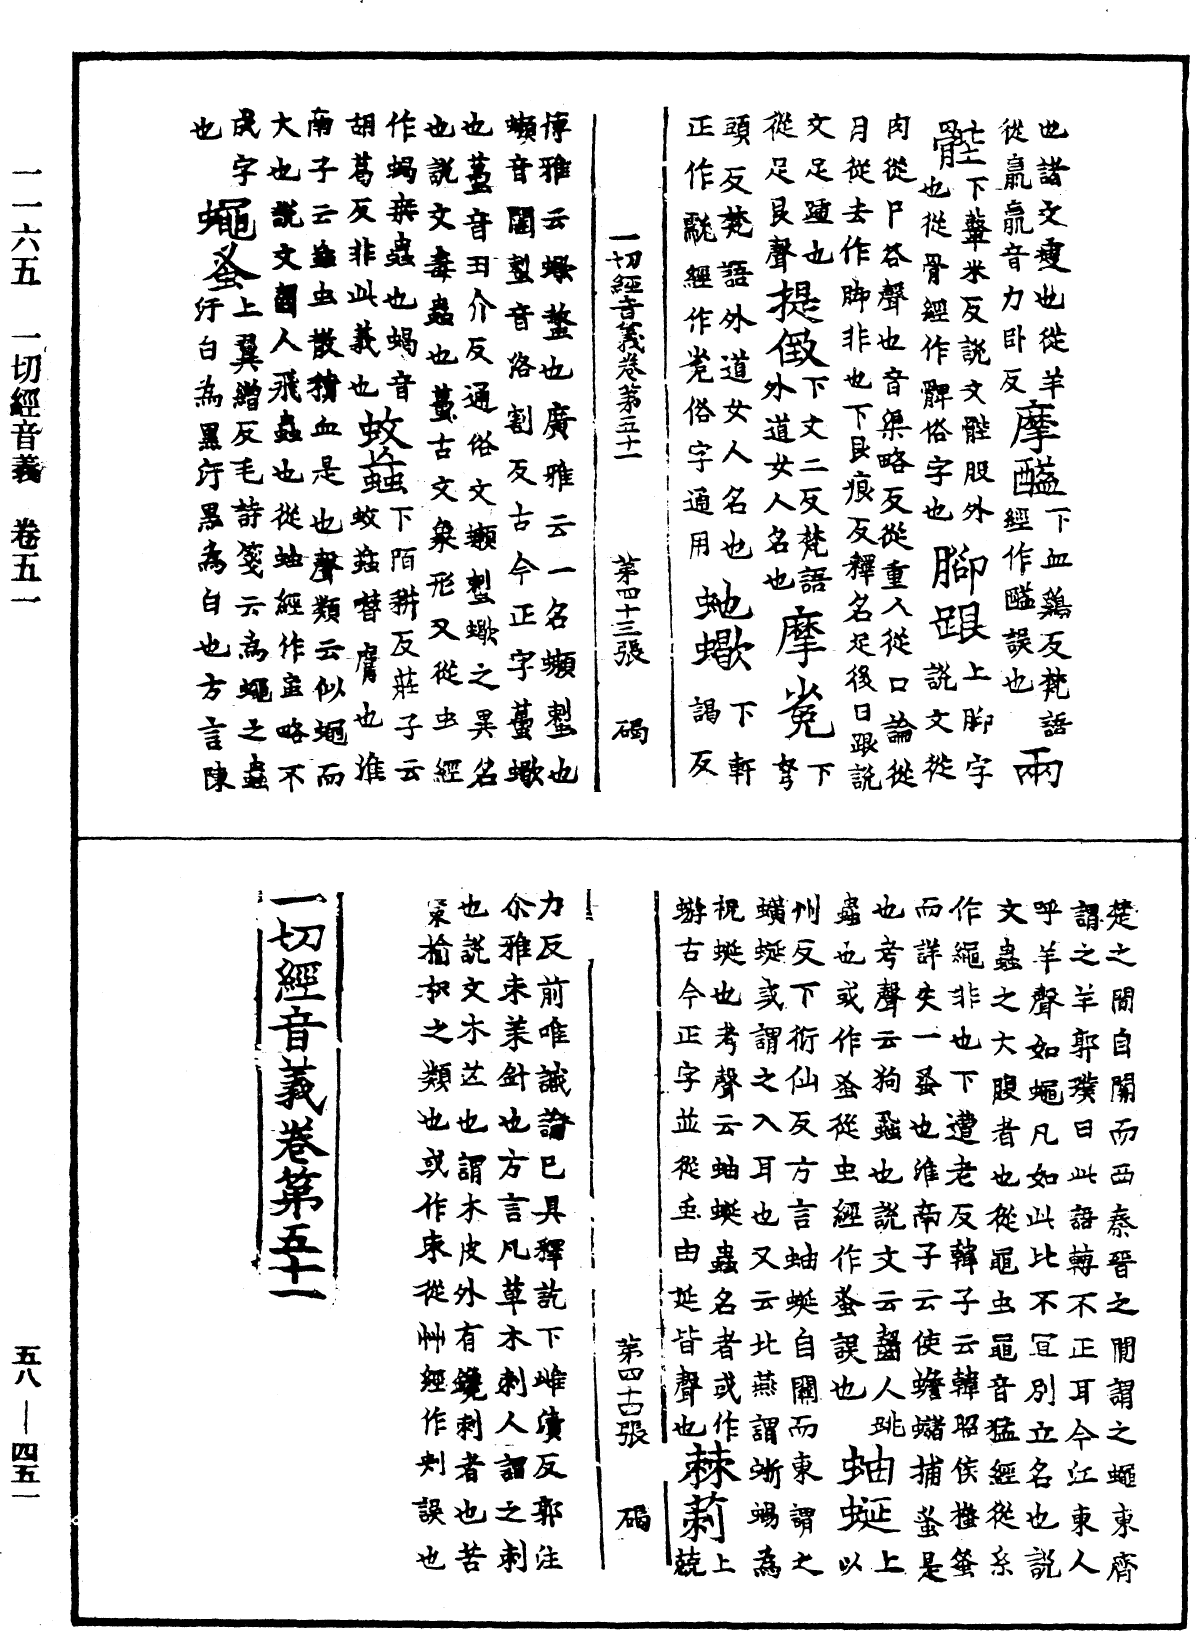 一一六五　一切經音義　卷五一
也諸文㾪也從羊從羸羸音力卧反摩醯下血鷄反梵語經作醯誤也兩
髀下鞞米反說文髀股外也從骨經作髀俗字也腳跟上脚字說文從
肉從卩谷聲也音渠略反從重入從口論從月從去作脚非也下艮痕反釋名足後曰跟說
文足踵也從足艮聲提㣲下文二反梵語外道女人名也摩㝹下努
頭反梵語外道女人名也正作㲋經作㝹俗字通用虵蠍下軒謁反
一切經音義卷第五十一　第四十三張　碣
博雅云蠍螫也廣雅云一名蠆也音闥音洛割反古今正字蠆蠍
也蠆音丑介反通俗文蠍之異名也說文毒蟲也蠆古文象形又從虫經
作蝎桑蟲也蝎音胡葛反非此義也蚊蝱下陌耕反莊子云蚊蝱噆膚也淮
南子云蝱虫散積血是也聲類云似蠅而大也說文齧人飛蟲也從䖵經作虻略不
成字也蠅蚤上翼繒反毛詩箋云為蠅之蟲汙白為黑汙黑為白也方言陳
楚之間自關而西秦晉之間謂之蠅東齊謂之羊郭璞曰此語轉不正耳今江東人
呼羊聲如蠅凡如此比不冝別立名也說文蟲之大腹者也從黽虫黽音猛經從糸
作繩非也下遭老反韓子云韓昭侯搔蚤而詳失一蚤也淮南子云使蟾蠩捕蚤是
也考聲云狗蝨也說文云齧人跳蟲也或作蚤從虫經作蚤誤也蚰蜒上以
州反下衍仙反方言蚰蜒自關而東謂之螾蜒或謂之入耳也又云北燕謂蚚蜴為
祝蜒也考聲云蚰蜒蟲名者或作蝣古今正字並從虫由延皆聲也棘莿上兢
第四十四張　碣
力反前唯識論已具釋訖下雌漬反郭注尒雅朿茦針也方言凡草木刺人謂之刺
也說文木芒也謂木皮外有鑱刺者也苦棗榆枳之類也或作朿從艸經作刾誤也
一切經音義卷第五十一
五八—四五一